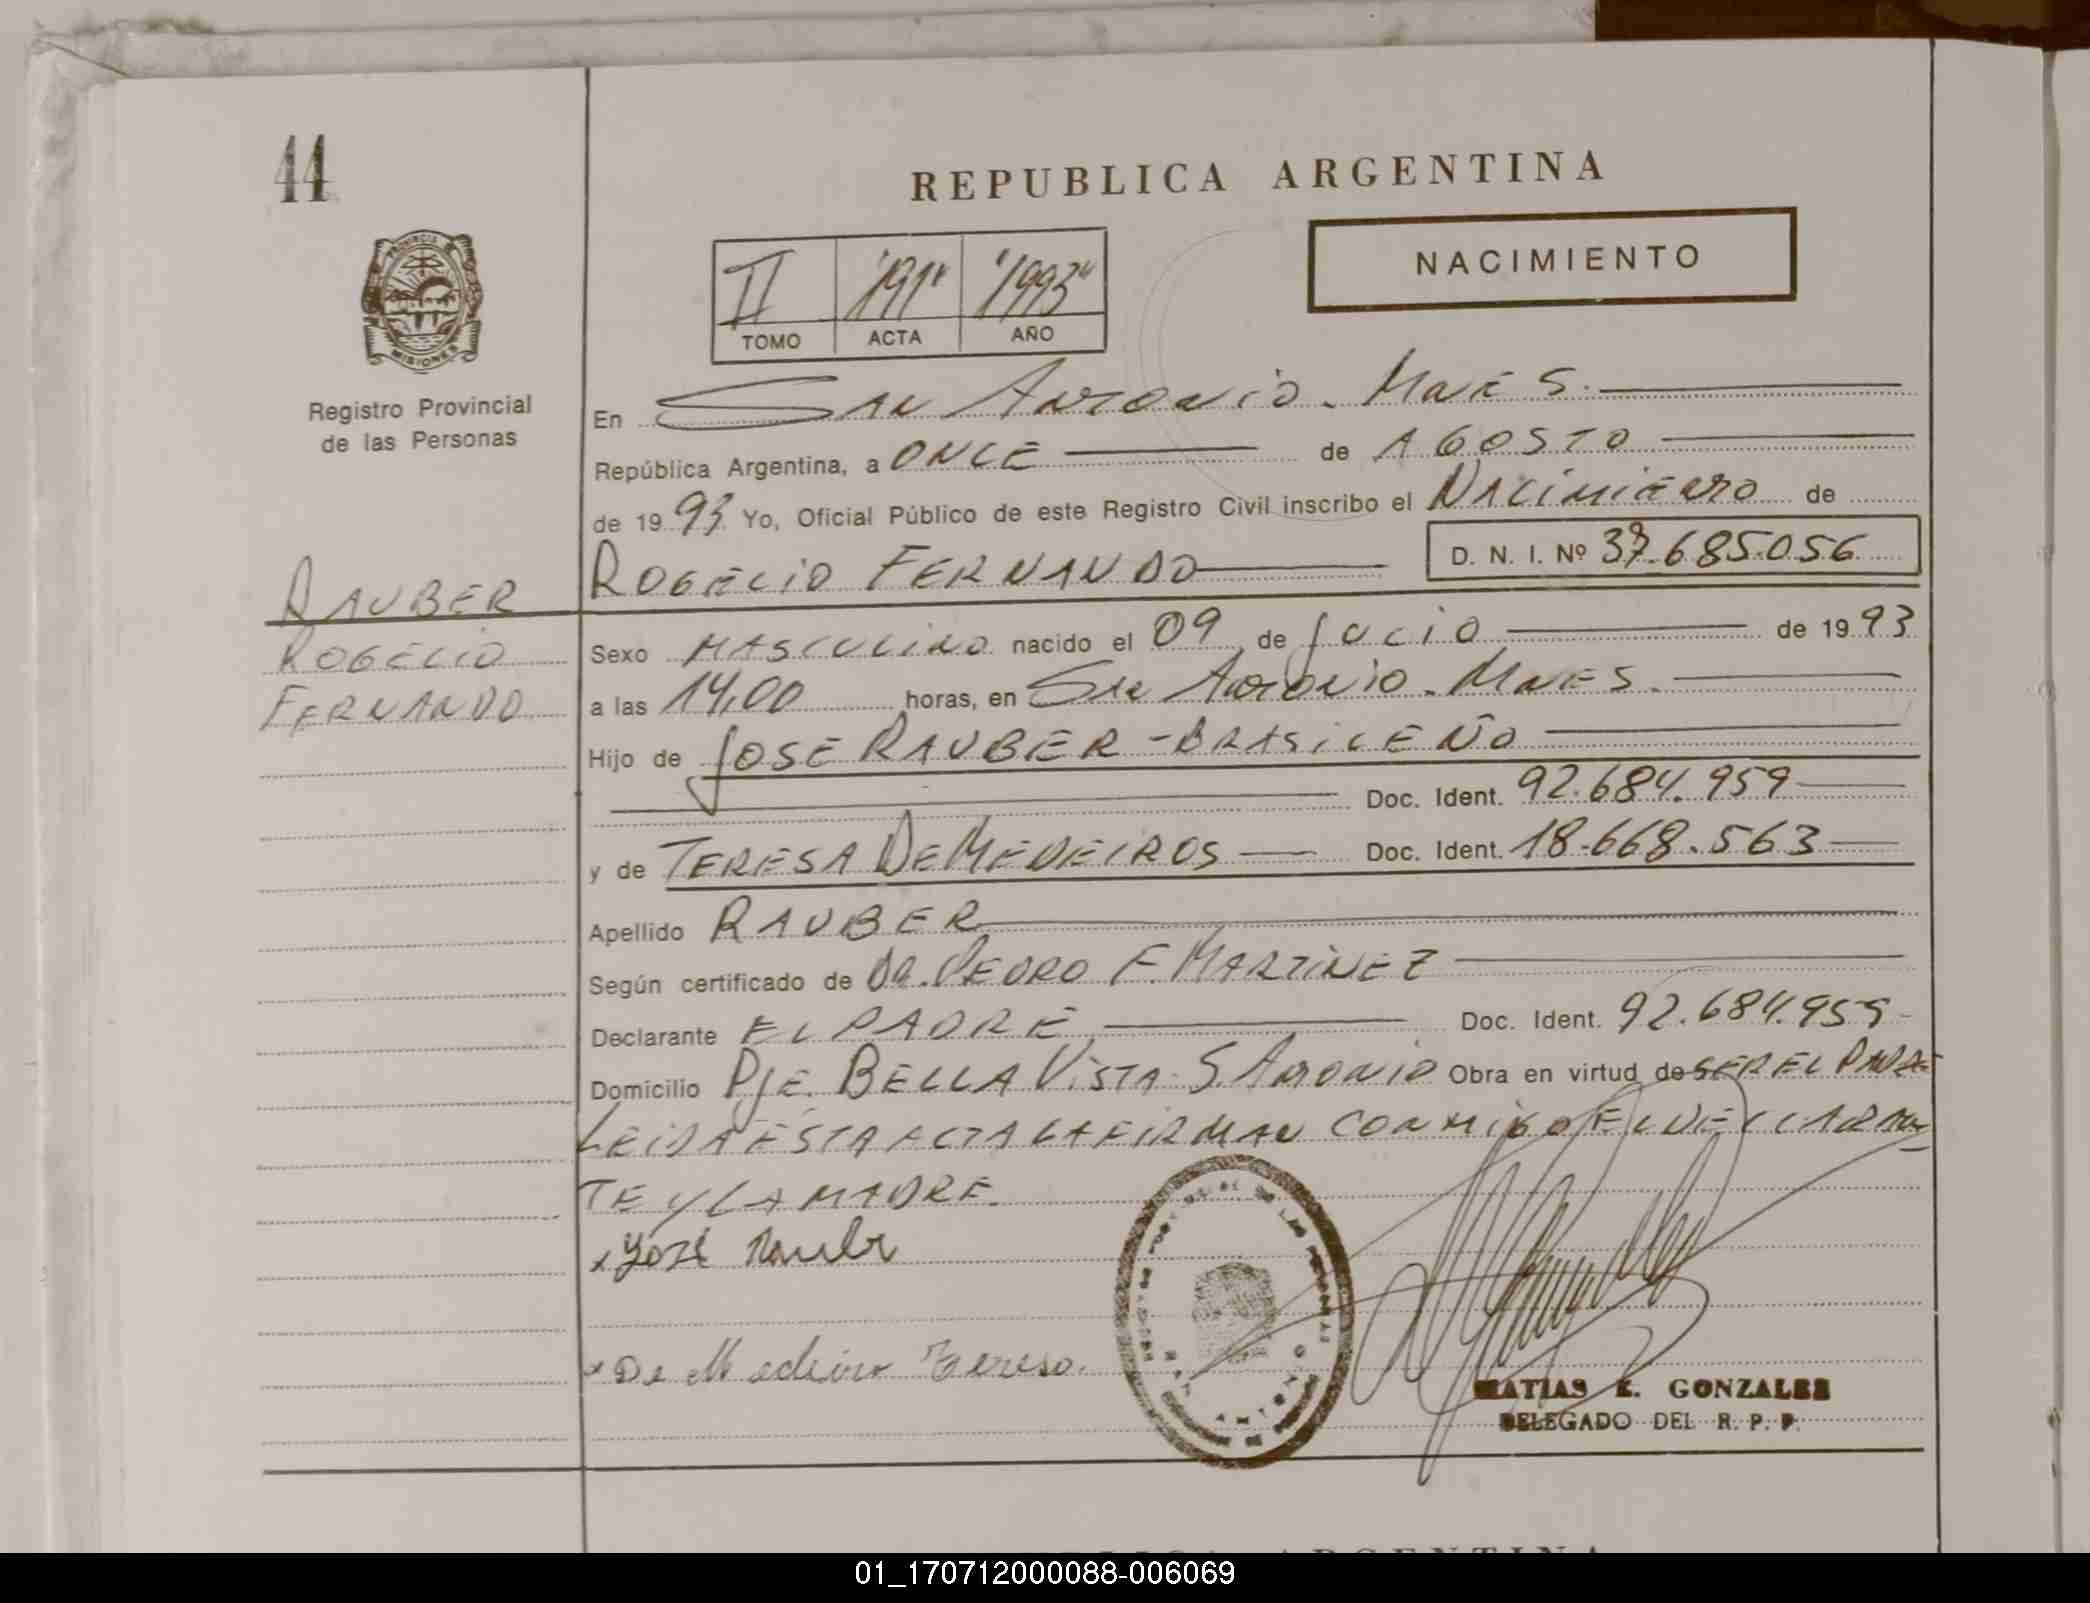 44
REPUBLICA ARGENTINA
NACIMIENTO
II "191" "1993"
TOMO ACTA AÑO
PROVINCIA DE
MISIONES
Registro Provincial
de las Personas
En SAN ANTONIO. MNES.
República Argentina, a ONCE de AGOSTO
de 1993 Yo, Oficial Público de este Registro Civil inscribo el NACIMIENTO de
ROGELIO FERNANDO D. N. I. Nº 37.685.056
RAUBER
ROGELIO
FERNANDO
Sexo MASCULINO nacido el 09 de JULIO de 1993
a las 14,00 horas, en SAN ANTONIO. MNES.
Hijo de JOSE RAUBER - BRASILEÑO
Doc. Ident. 92.684.959
y de TERESA DE MEDEIROS Doc. Ident. 18.668.563
Apellido RAUBER
Según certificado de DR. PEDRO F. MARTINEZ
Declarante EL PADRE Doc. Ident. 92.684.959
Domicilio PJE. BELLA VISTA - S. ANTONIO Obra en virtud de SER EL PADRE
LEIDA ESTA ACTA LA FIRMAN CONMIGO EL DECLARAN
TE Y LA MADRE.
x José Rauber
x De Medeiro Tereso.
MATIAS E. GONZALEZ
DELEGADO DEL R. P. P.
REPUBLICA ARGENTINA
01_170712000088-006069